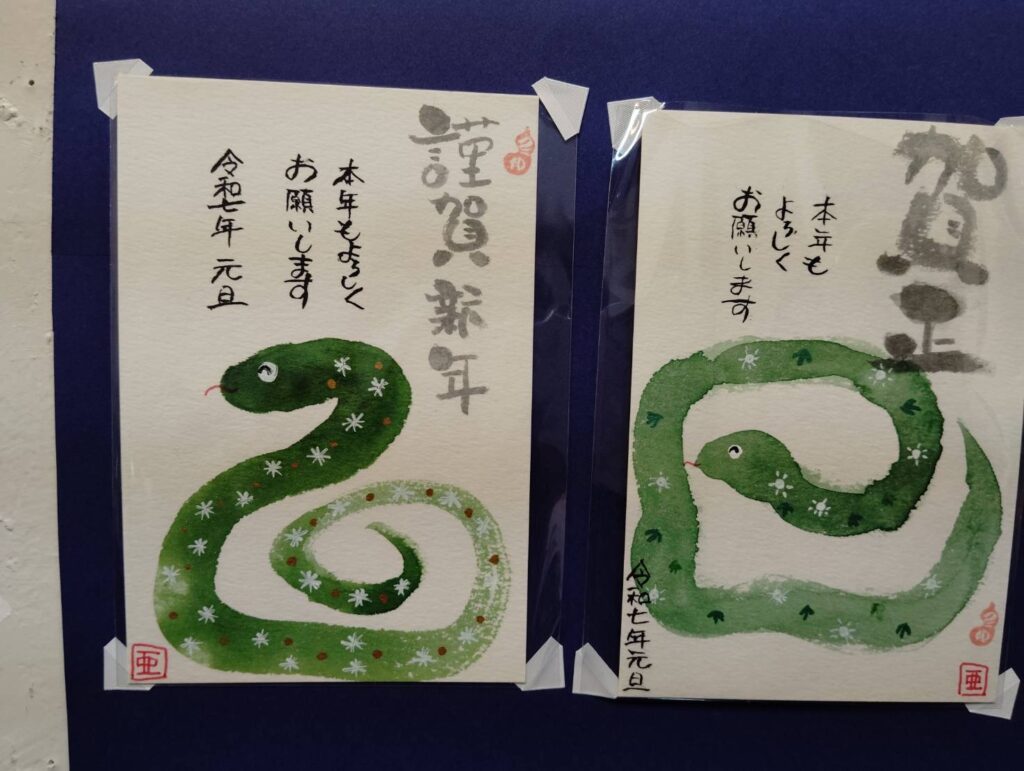 謹賀新年
本年もよろしく
お願いします
令和七年 元旦
亜
賀正
本年も
よろしく
お願いします
令和七年元旦
亜